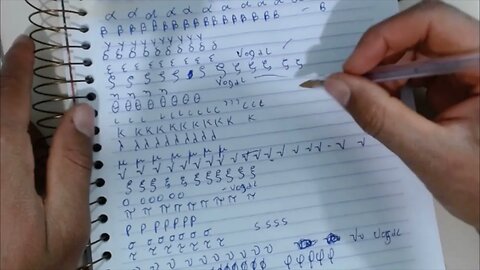 α α α α α α α α α α α α
β β β β β β β β β β β β β β β β - β
γ γ γ γ γ γ γ γ γ γ
δ δ δ δ δ δ δ δ δ δ
ε ε ε ε ε ε ε ε ε vogal
ζ ζ ζ ζ ζ ζ ζ ζ ζ ζ ζ ζ
η η η η η vogal
θ θ θ θ θ θ θ θ
ι ι ι ι ι ι ι ι ι ι ι ι ι
κ κ κ κ κ κ κ κ κ κ κ κ
λ λ λ λ λ λ λ λ λ
μ μ μ μ μ μ μ
ν ν ν ν ν ν ν ν ν ν ν ν ν - ν ν
ξ ξ ξ ξ ξ ξ ξ ξ ξ ξ ξ
ο ο ο ο ο ο ο - vogal
π π π π π π π π π π
ρ ρ ρ ρ ρ ρ ρ
σ σ σ σ σ σ σ s s s s
τ τ τ τ τ τ τ
υ υ υ υ υ υ υ υ υ υ υ υ vogal
φ φ φ φ φ